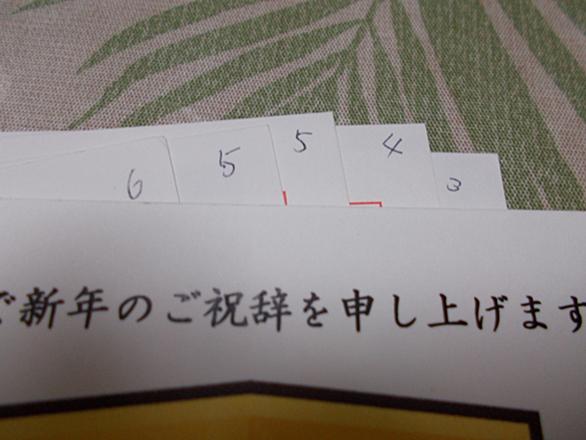 6 5 5 4 3
で新年のご祝辞を申し上げます